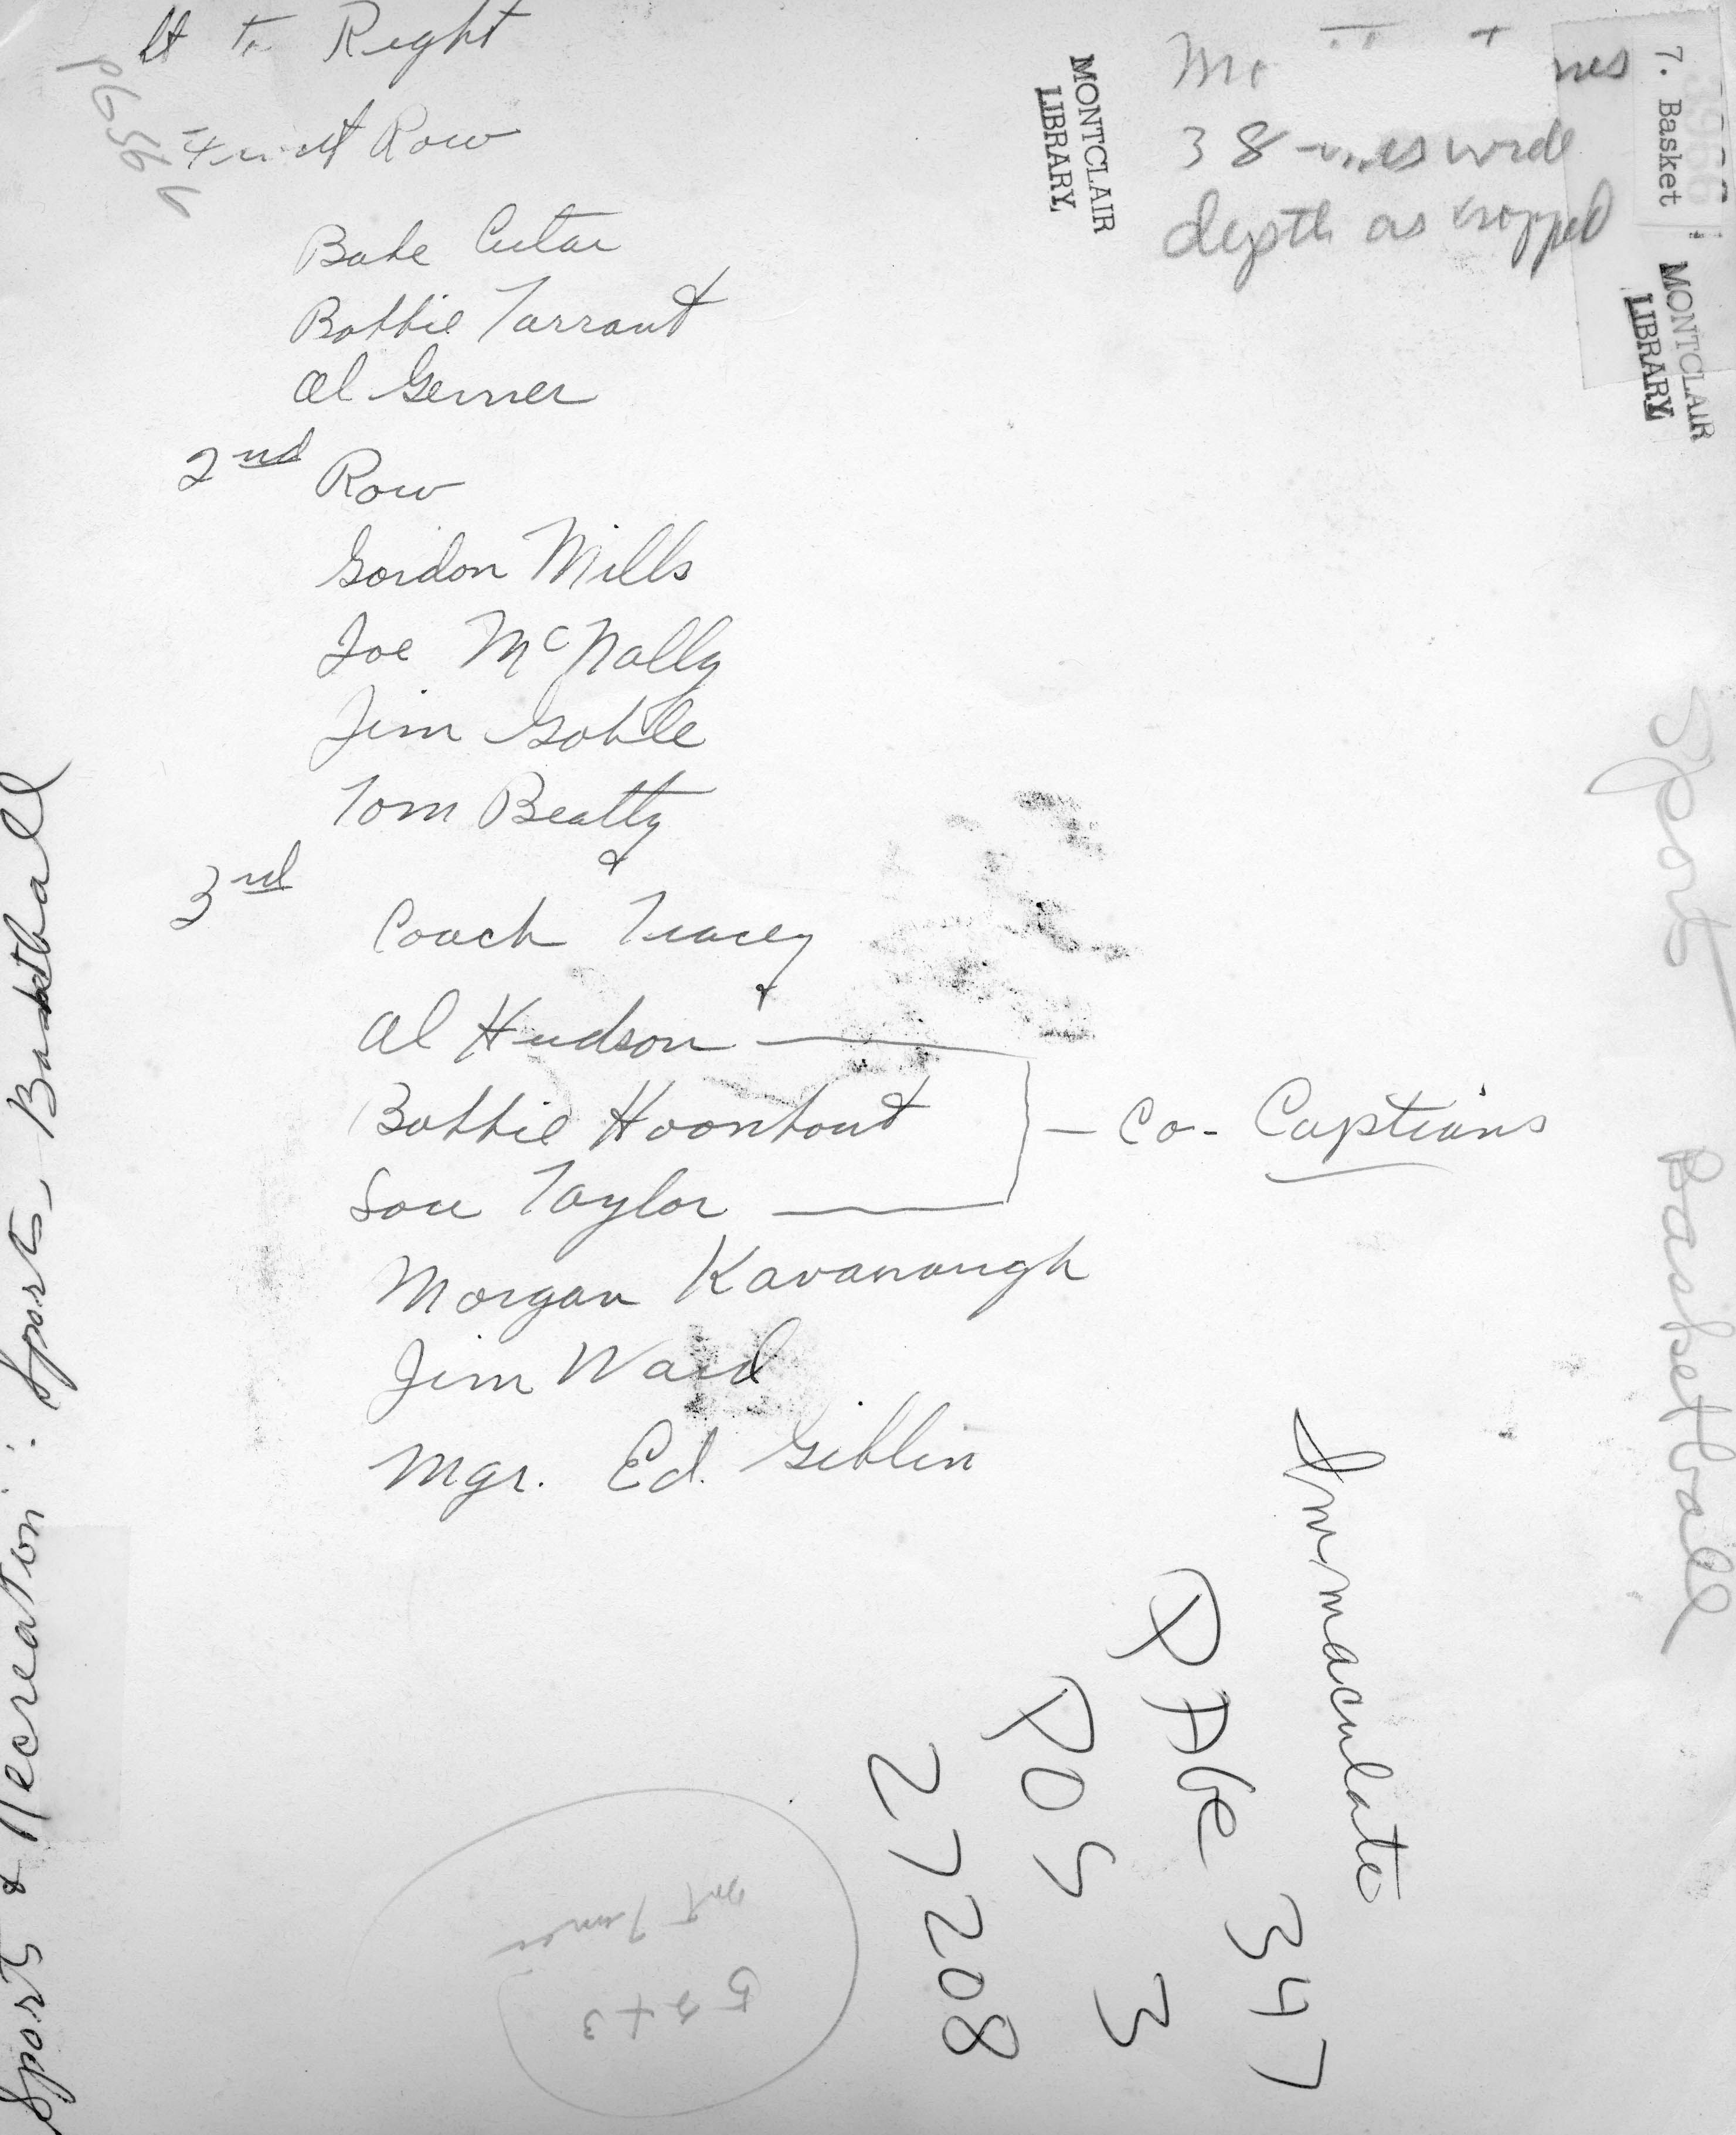 lt to Right
First Row
Babe Cutar
Bobbie Tarrant
Al Gerner
2nd Row
Gordon Mills
Joe McNally
Jim Goble
Tom Beatty
3rd
Coach Tracey
Al Hudson
Bobbie Hoonhout
Lou Taylor
Co-Captians
Morgan Kavanaugh
Jim Ward
Mgr. Ed. Giblin
MONTCLAIR
LIBRARY
38 wide
depth as cropped
7. Basket
MONTCLAIR
LIBRARY
Sport Basketball
Immaculate
PAGE 347
POS 3
27208
Sports & Recreation: Sports, Basketball